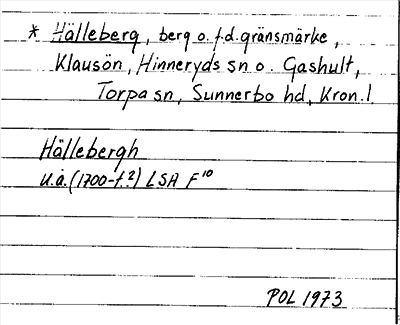 * Hälleberg, berg o. f.d. gränsmärke,
Klausön, Hinneryds sn o. Gashult,
Torpa sn, Sunnerbo hd, Kron. l.
Hällebergh
u.å. (1700-t.?) LSA F¹⁰
POL 1973